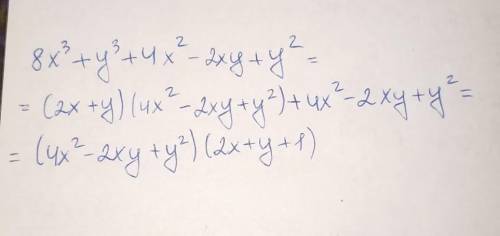 8x³+y³+4x²-2xy+y²=
=(2x+y)(4x²-2xy+y²)+4x²-2xy+y²=
=(4x²-2xy+y²)(2x+y+1)